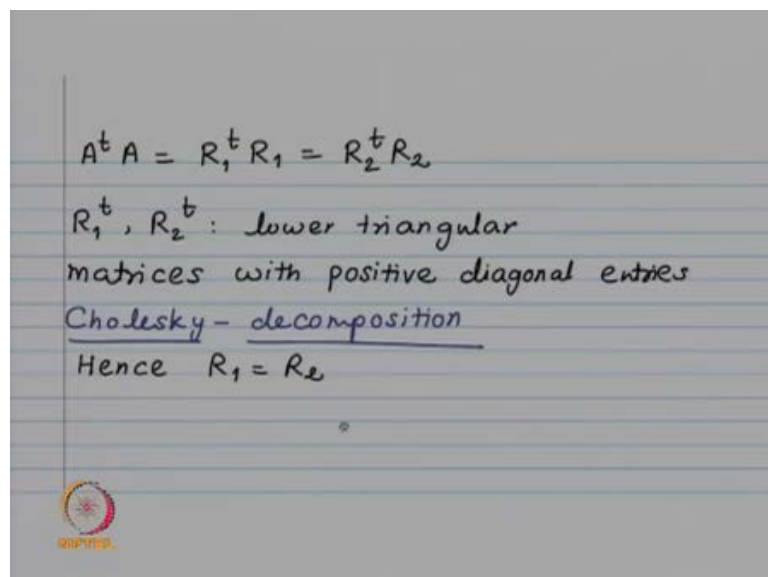 Aᵗ A = R₁ᵗ R₁ = R₂ᵗ R₂
R₁ᵗ, R₂ᵗ : lower triangular
matrices with positive diagonal entries
Cholesky - decomposition
Hence R₁ = R₂
NPTEL